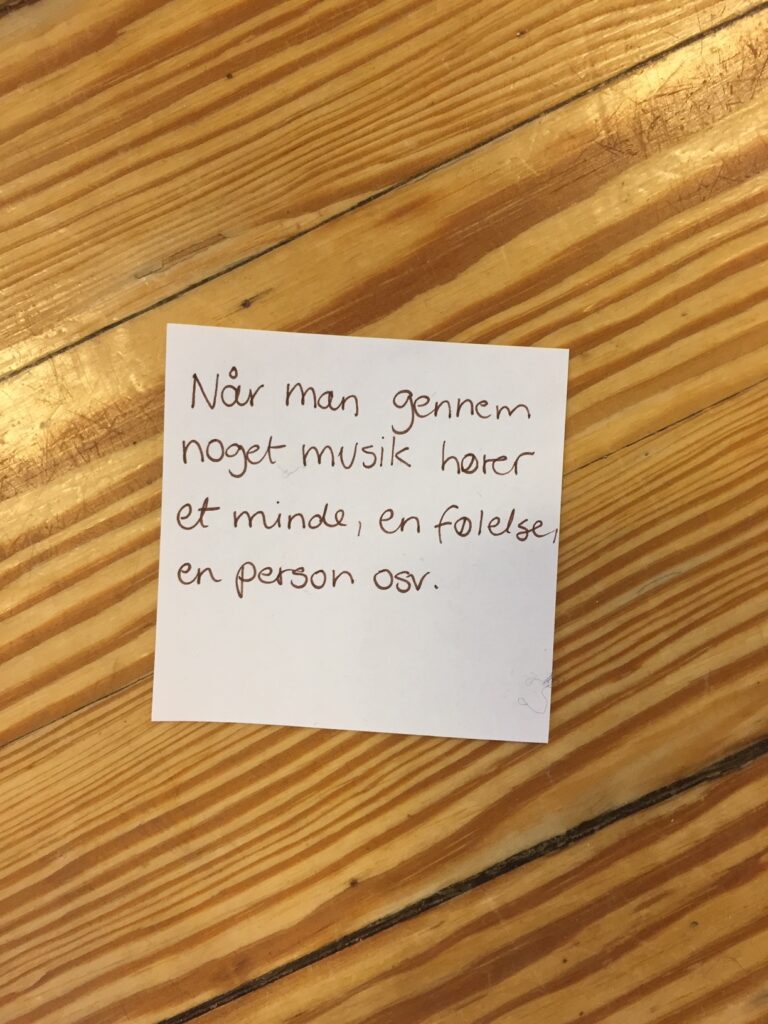 Når man gennem
noget musik hører
et minde, en følelse,
en person osv.